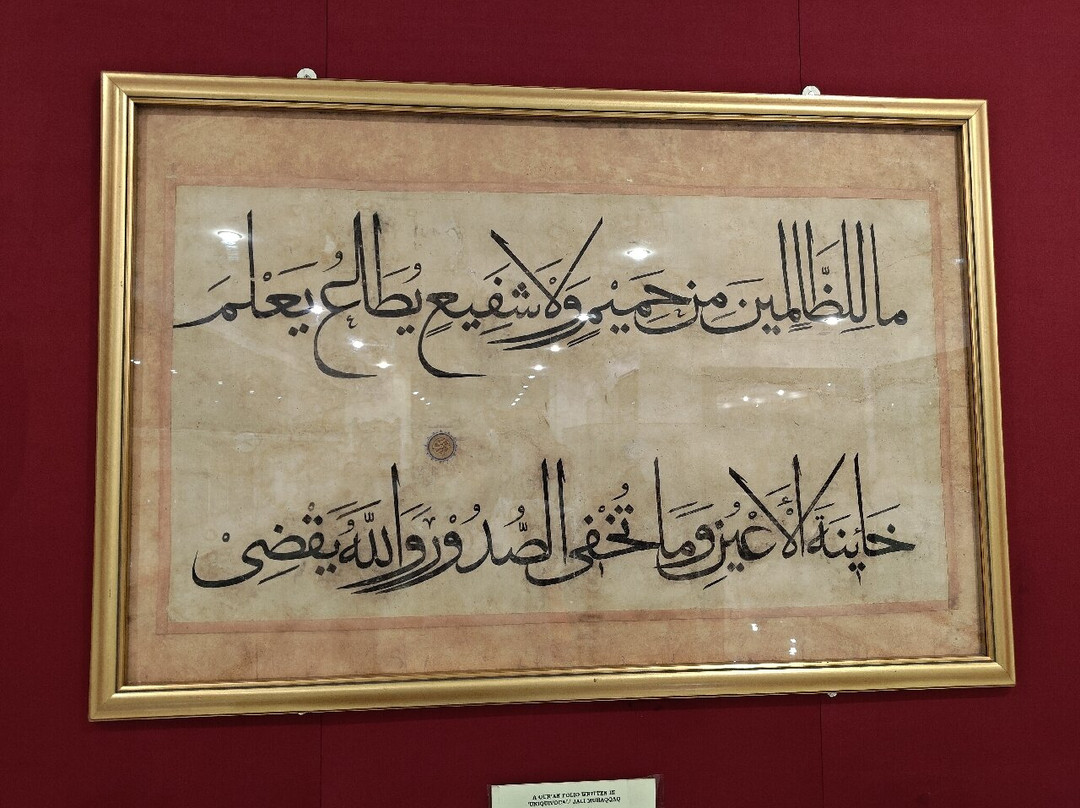 ما لِلظَّالِمِينَ مِنْ حَمِيمٍ وَلَا شَفِيعٍ يُطَاعُ يَعْلَمُ
خَائِنَةَ الْأَعْيُنِ وَمَا تُخْفِي الصُّدُوْرُ وَاللَّهُ يَقْضِيْ
A QUR'AN FOLIO WRITTEN IN
'UNIQUIVOCAL' JALI MUHAQQAQ